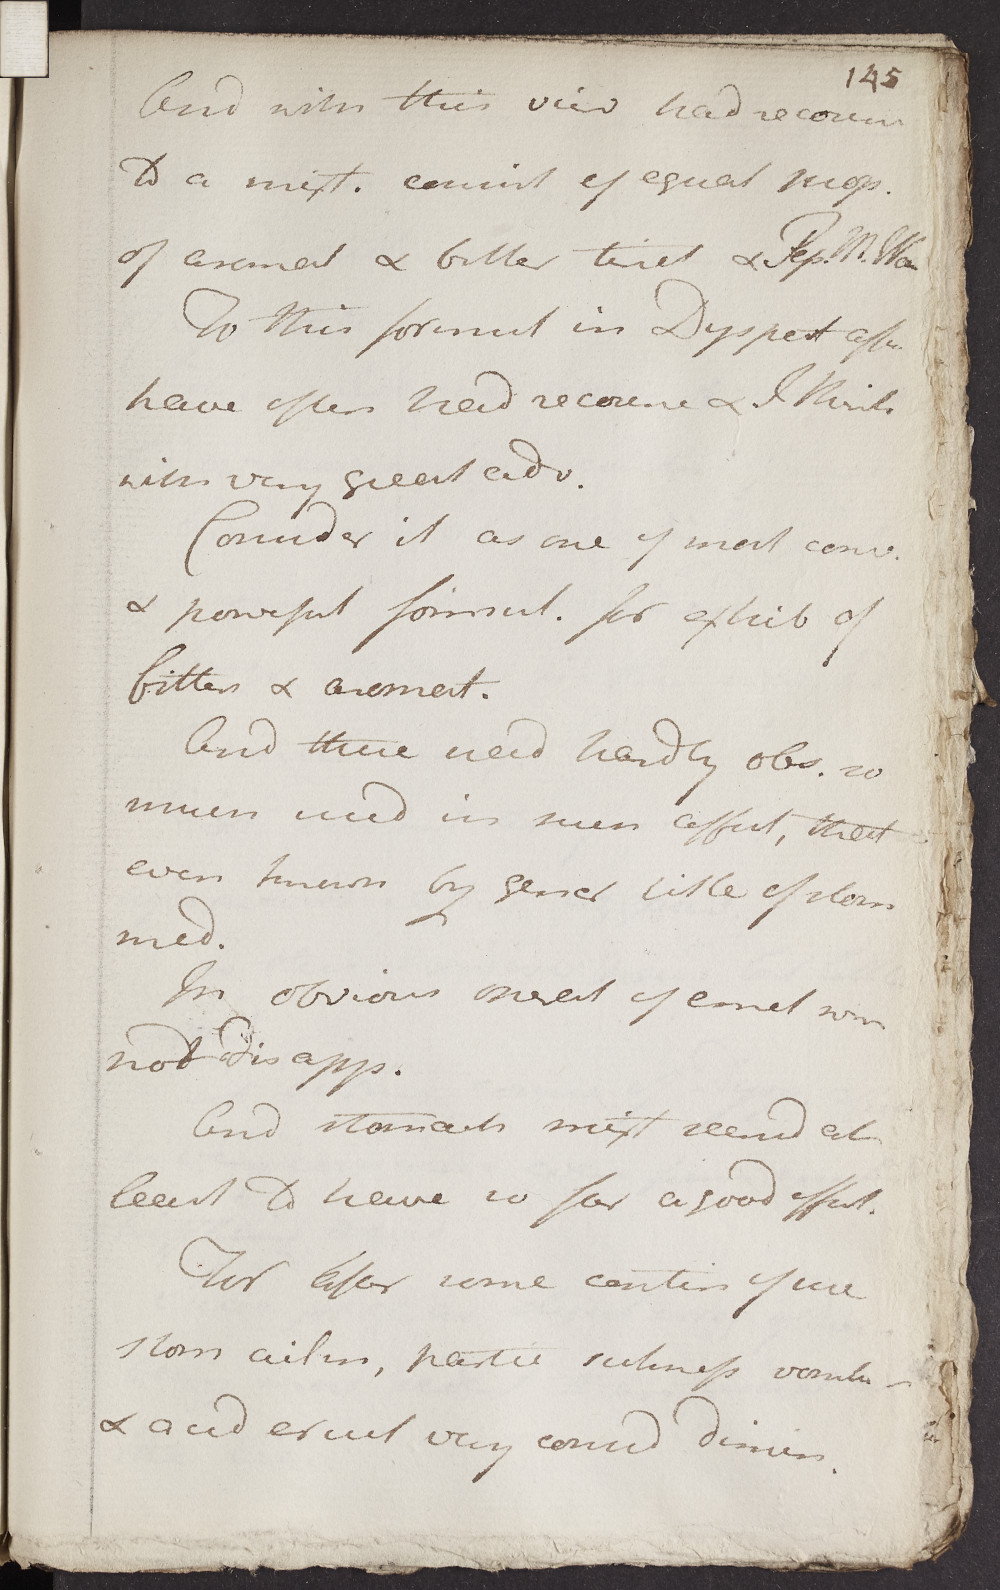 145
And with this view had recours
to a mixt. consist of equal prop.
of aromat & bitter tinct & Pep. M. Wa
To this formul in Dyspept affec
have often had recourse & I think
with very great adv.
Consider it as one of most conv.
& powerful formul. for exhib of
bitters & aromat.
And these need hardly obs. so
much used in such affect, that
even known by gener title of stom
med.
In obvious operat of emet was
not disapp.
And stomach mixt seemd at
least to have so far a good effect.
For after some contin of use
stom ailm, partic sickness vomit
& acid eruct very consid dimin.